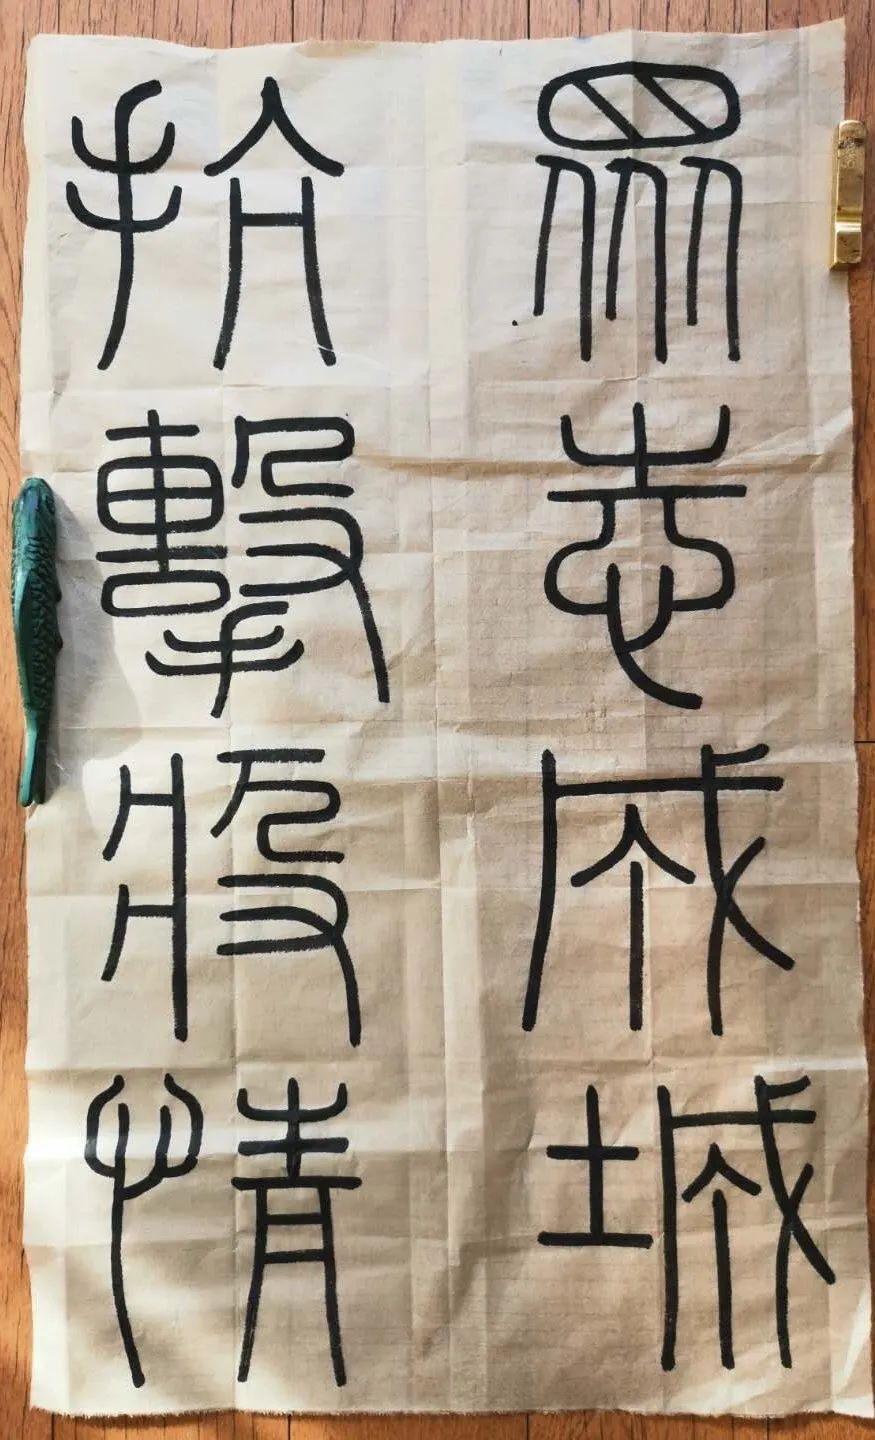 眾志成城
抗擊疫情